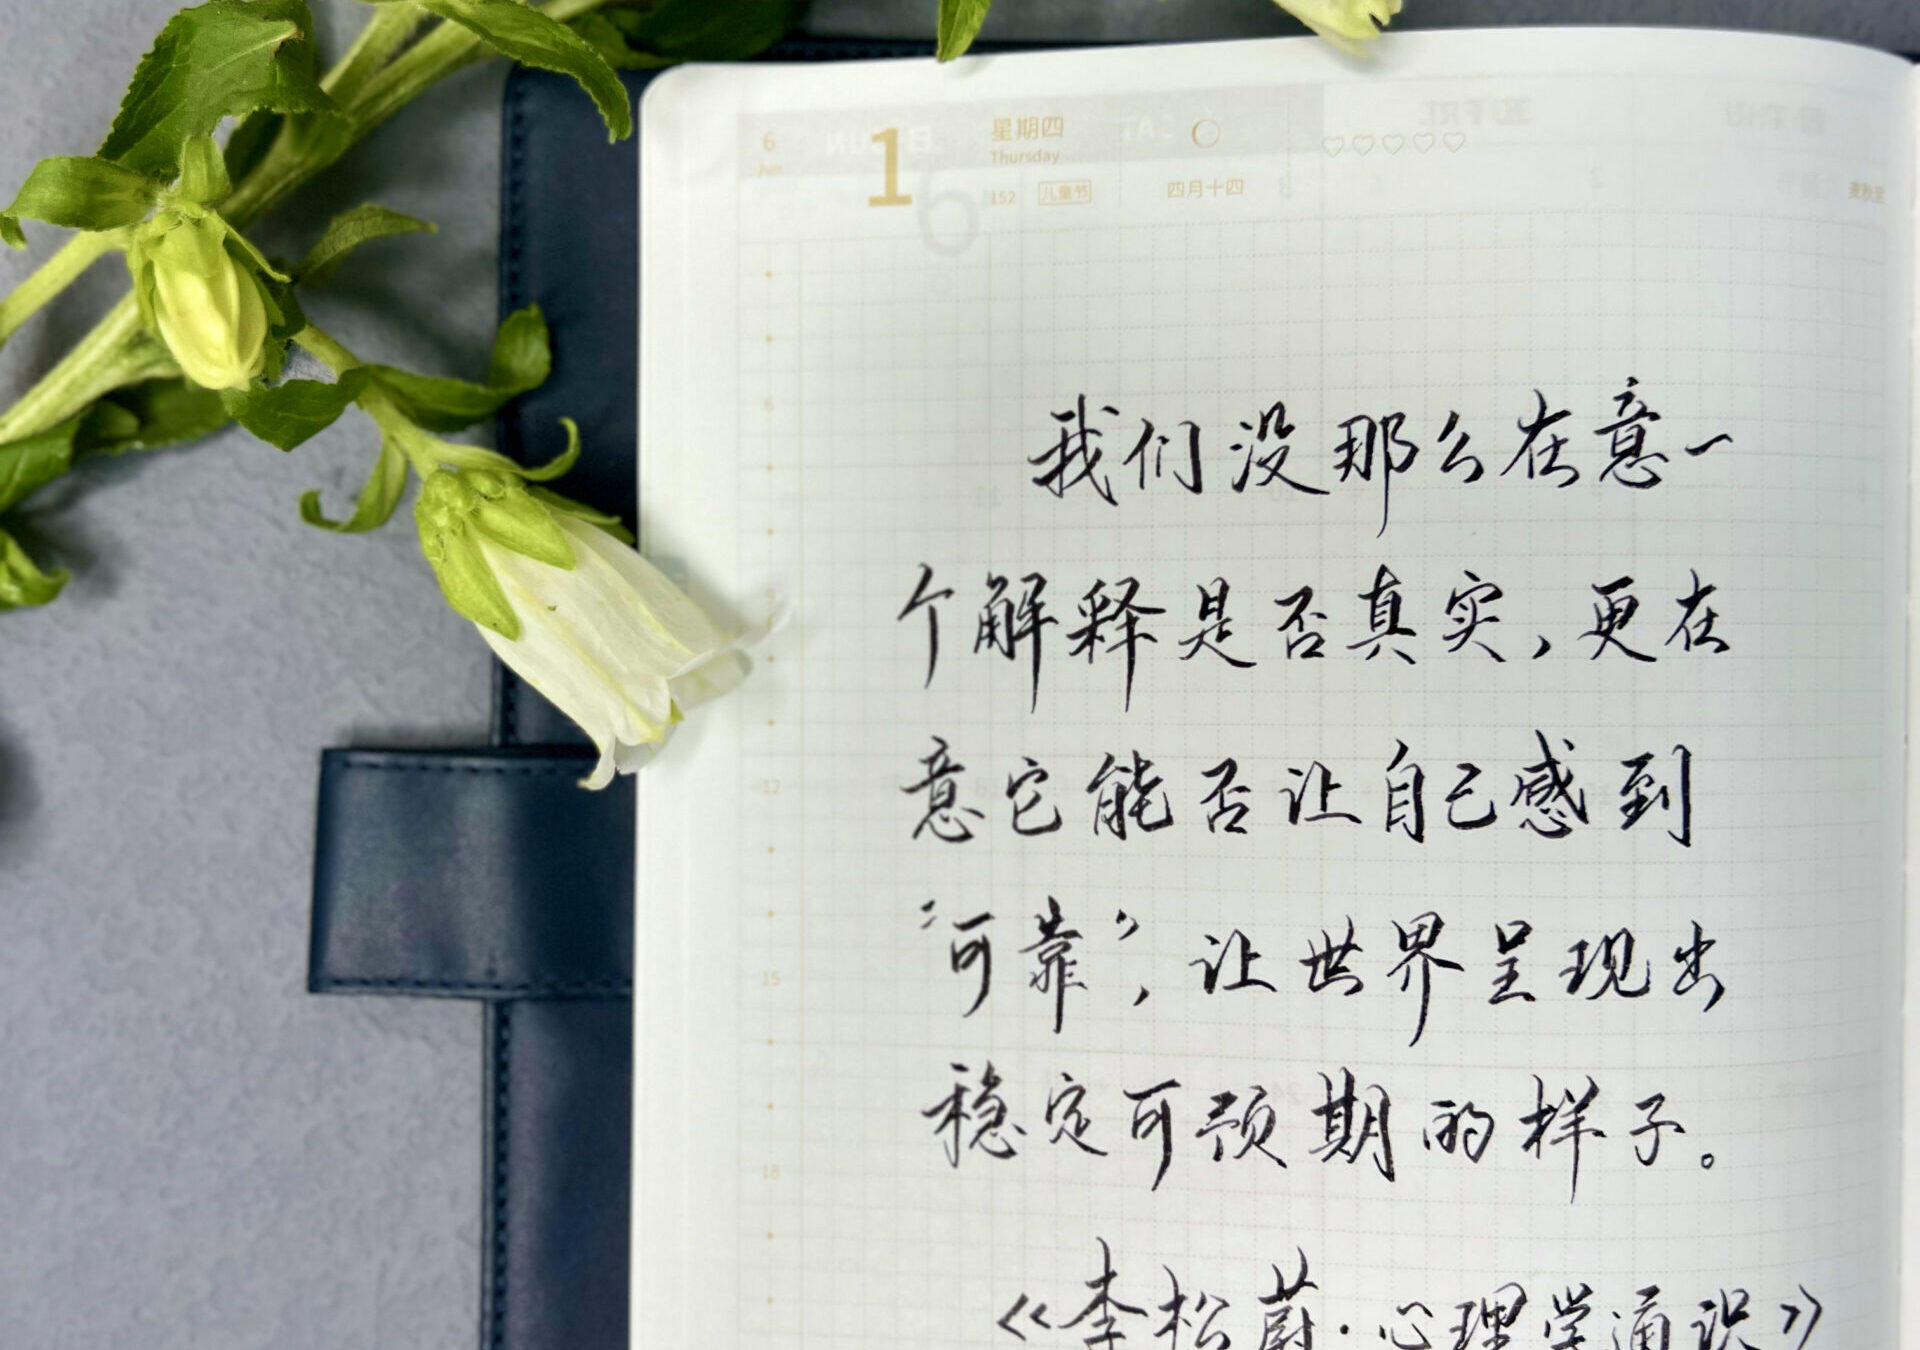 6 1 星期四
Jun Thursday
152 儿童节 四月十四
我们没那么在意一
个解释是否真实，更在
意它能否让自己感到
“可靠”，让世界呈现出
稳定可预期的样子。
《李松蔚·心理学通识》
6
12
15
18